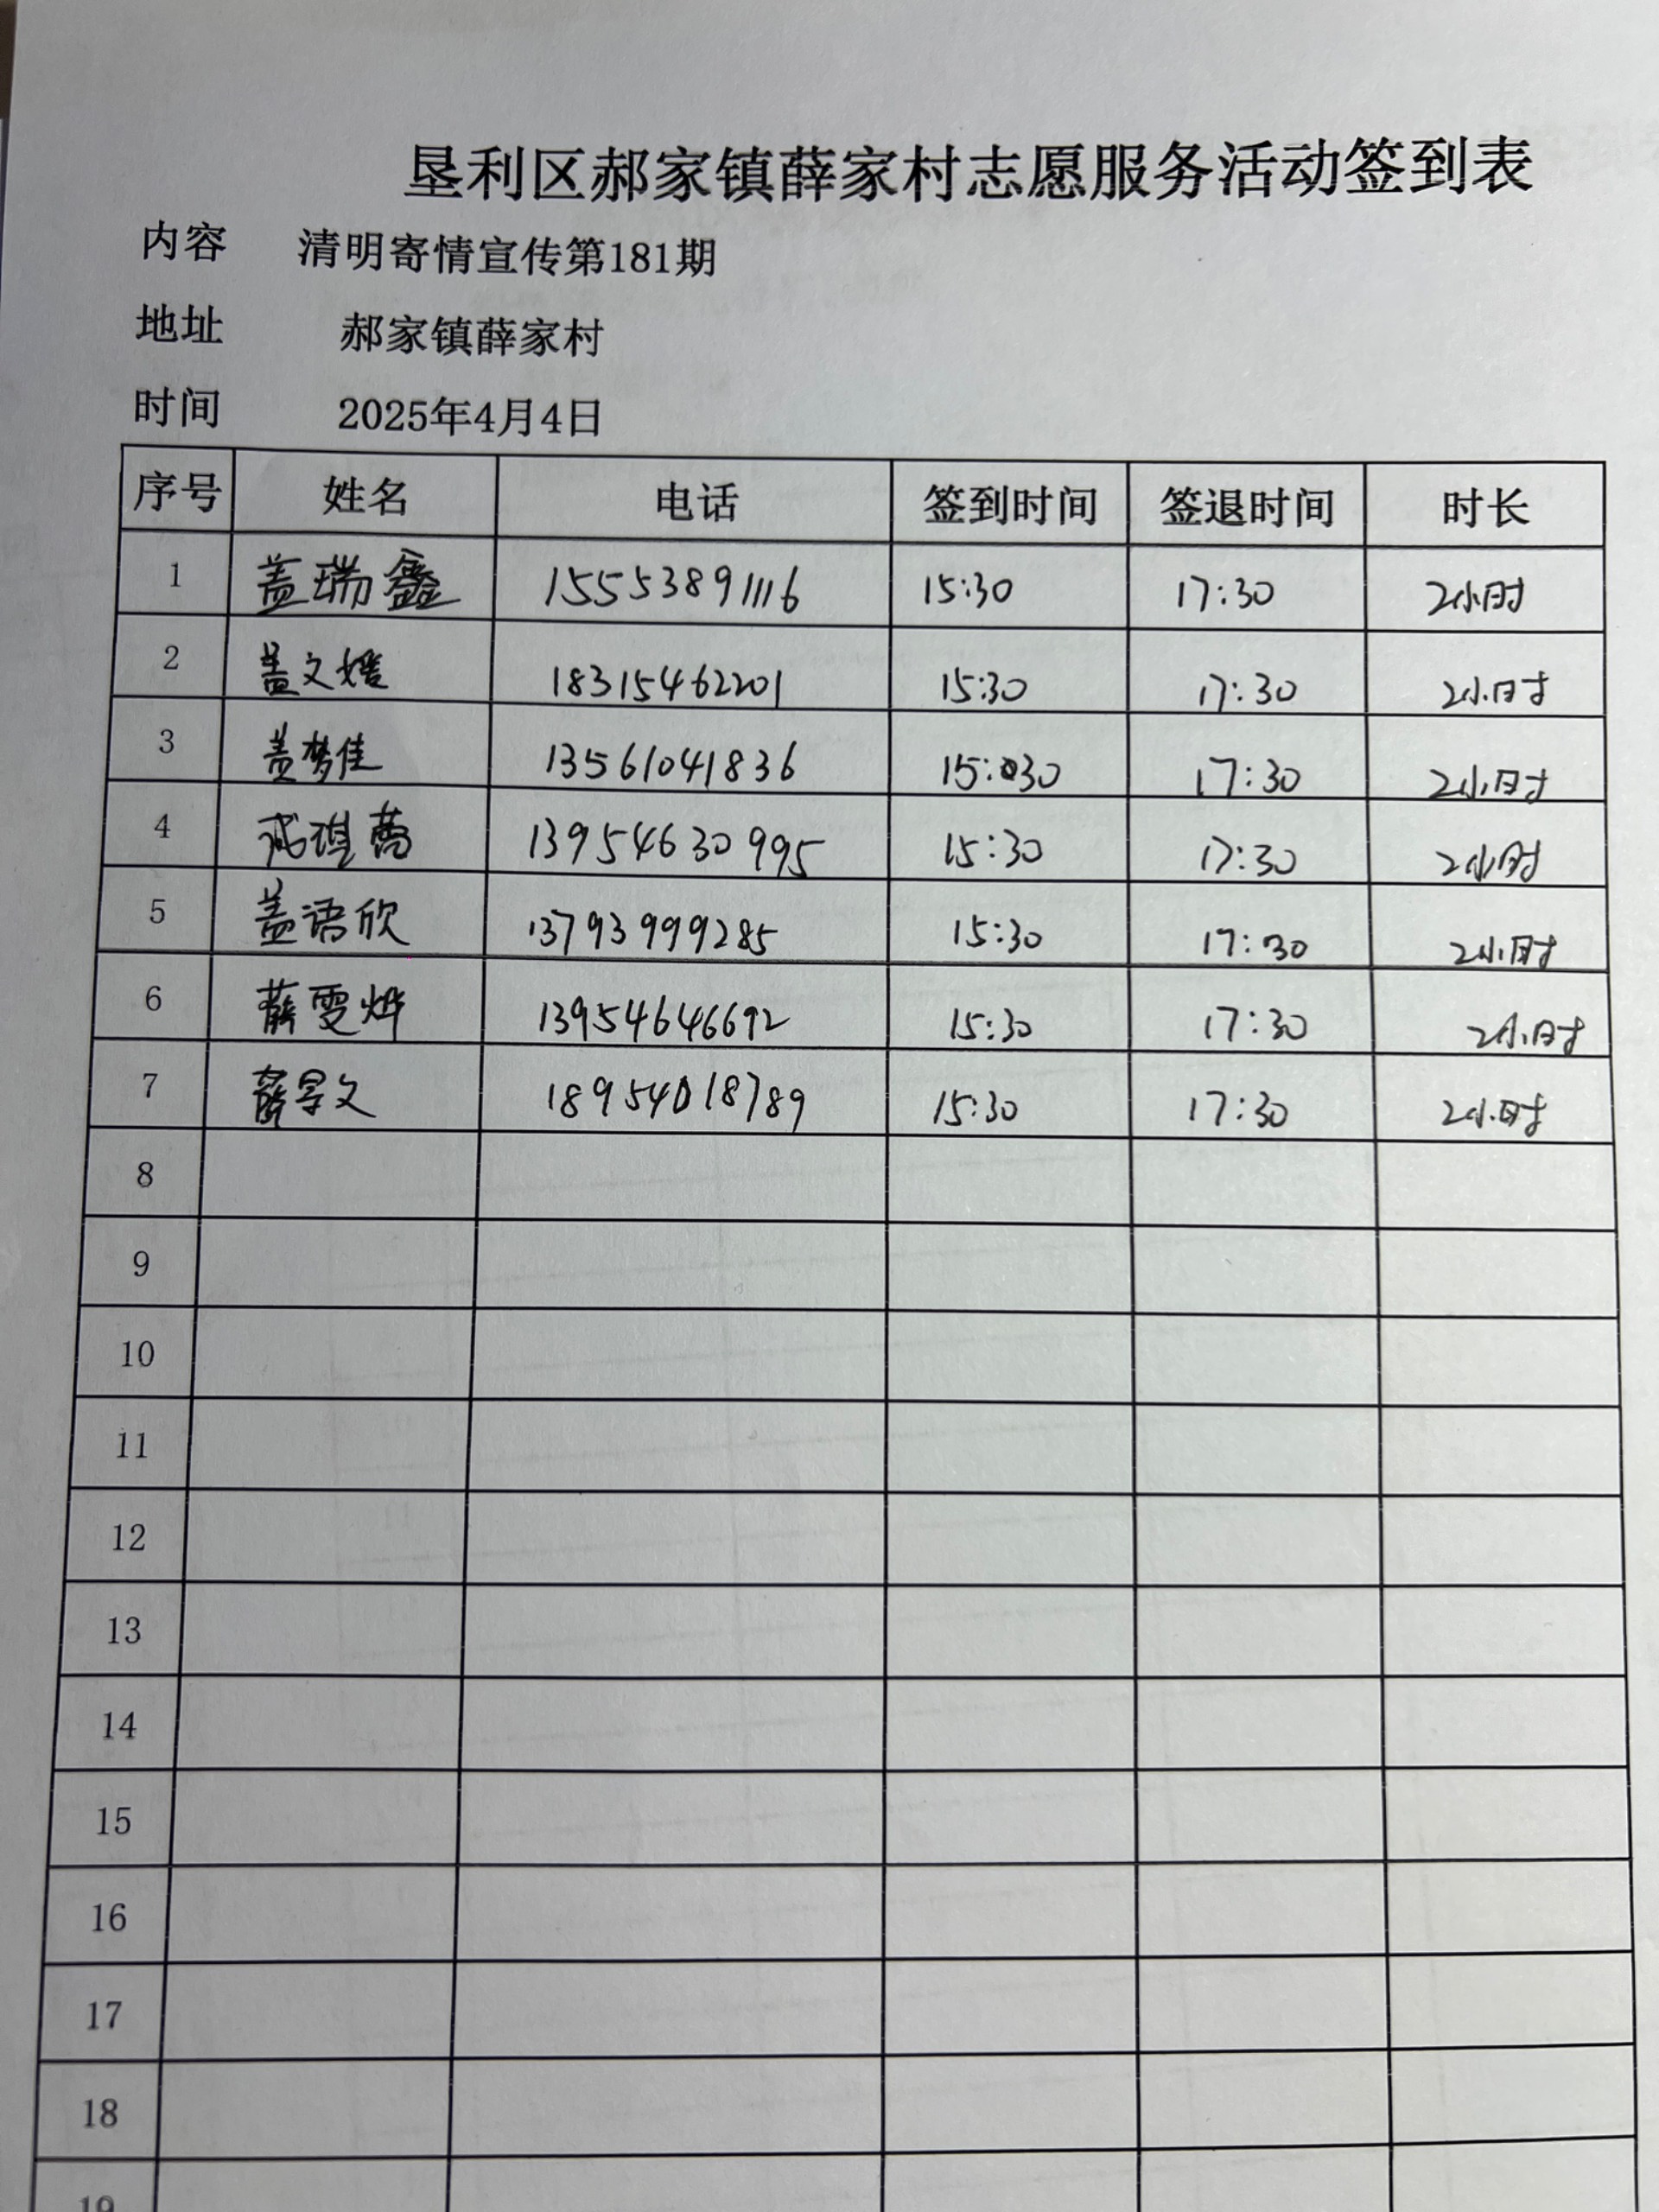 垦利区郝家镇薛家村志愿服务活动签到表
内容 清明寄情宣传第181期
地址 郝家镇薛家村
时间 2025年4月4日
序号 姓名 电话 签到时间 签退时间 时长
1 盖瑞鑫 15553891116 15:30 17:30 2小时
2 盖文媛 18315462201 15:30 17:30 2小时
3 盖梦佳 13561041836 15:30 17:30 2小时
4 13954630995 15:30 17:30 2小时
5 盖语欣 13793999285 15:30 17:30 2小时
6 薛雯烨 13954646692 15:30 17:30 2小时
7 18954018789 15:30 17:30 2小时
8
9
10
11
12
13
14
15
16
17
18
19